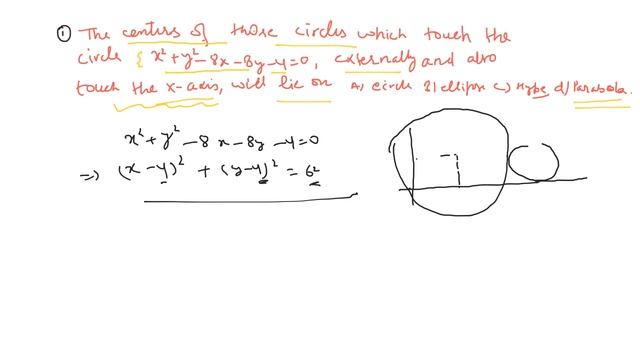 ① The centers of those circles which touch the
circle { x² + y² - 8x - 8y - 4 = 0, externally and also
touch the x-axis, will lie on A) circle B) ellipse C) Hype d) Parabola.
x² + y² - 8x - 8y - 4 = 0
⇒ (x - 4)² + (y - 4)² = 6²